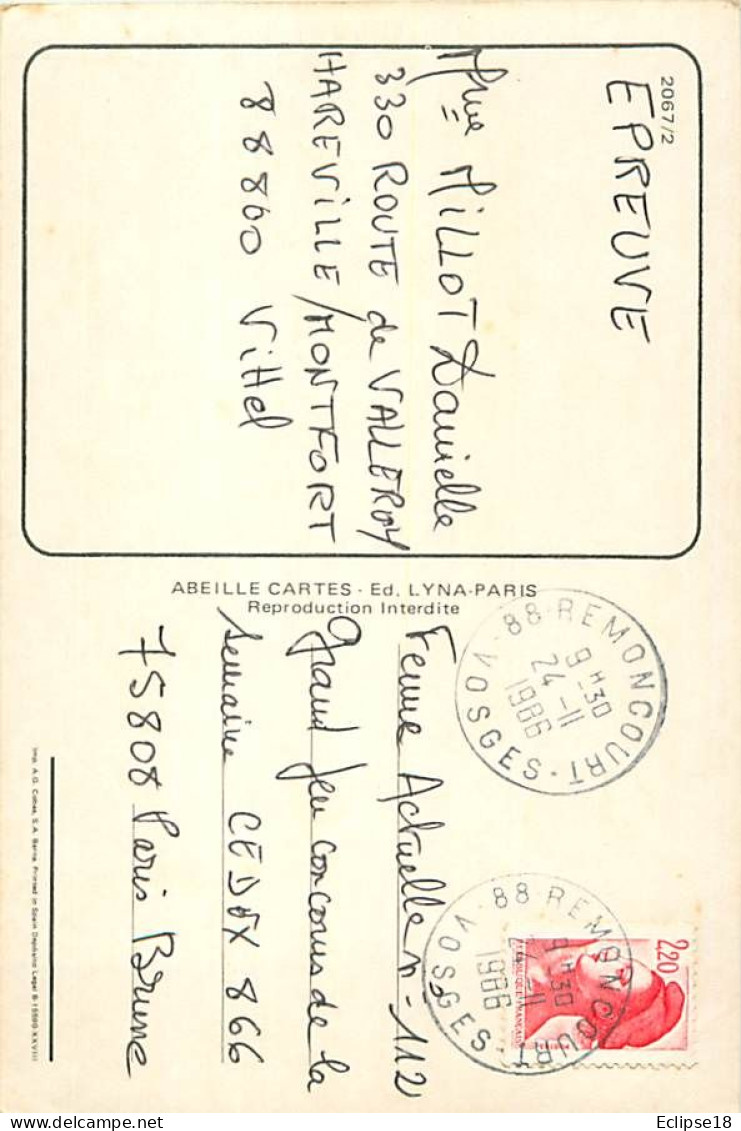 2067/2
EPREUVE
Mme MILLOT Danielle
330 ROUTE de VALLEROY
HAREVILLE/MONTFORT
88800 Vittel
ABEILLE CARTES - Ed. LYNA-PARIS
Reproduction Interdite
88 REMONCOURT
9H30
24-11
1986
VOSGES
88 REMONCOURT
9H30
24-11
1986
VOSGES
2,20
Femme Actuelle n-112
Grand Jeu Concours de la
semaine CEDEX 866
75808 Paris Brune
Imp. A.G. Cobas, S.A. Berna. Printed in Spain Depósito Legal B-15590-XXVIII
Eclipse18